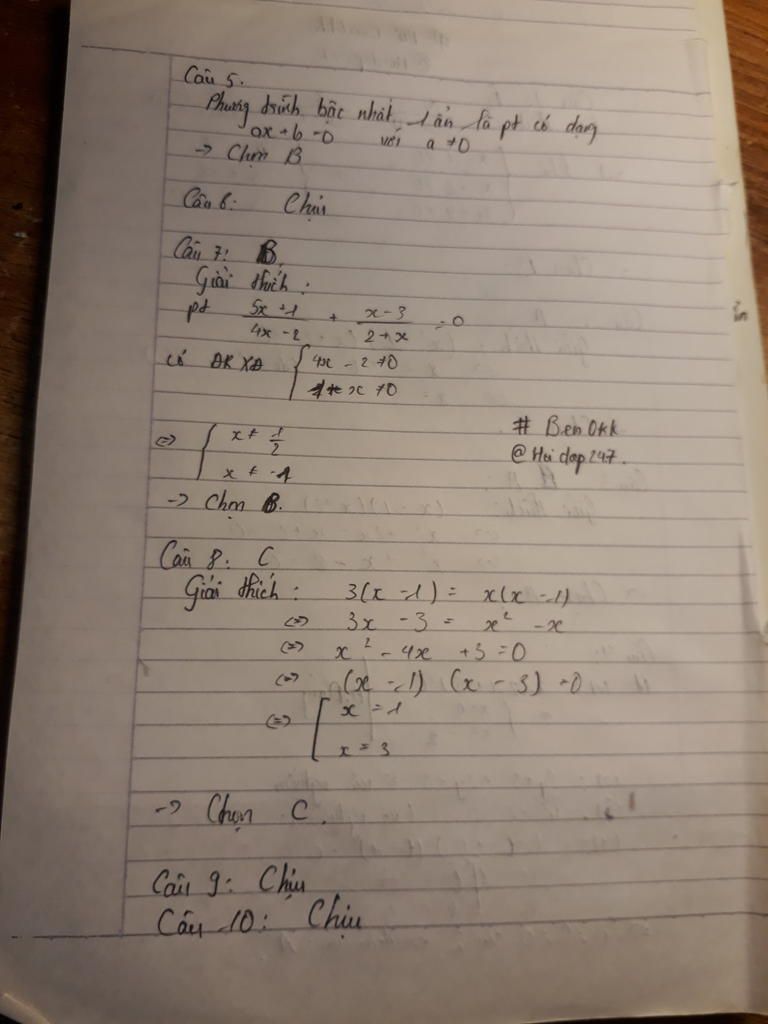 Câu 5.
Phương trình bậc nhất 1 ẩn là pt có dạng
ax + b = 0 với a ≠ 0
→ Chọn B
Câu 6: Chịu
Câu 7: B.
Giải thích:
pt (5x + 1)/(4x - 2) + (x - 3)/(2 + x) = 0
có ĐKXĐ { 4x - 2 ≠ 0
x ≠ 0
<=> { x ≠ 1/2
x ≠ -1
→ Chọn B.
# BenOkk
@Hoidap247.
Câu 8: C
Giải thích: 3(x - 1) = x(x - 1)
<=> 3x - 3 = x² - x
<=> x² - 4x + 3 = 0
<=> (x - 1) (x - 3) = 0
<=> [ x = 1
x = 3
→ Chọn C.
Câu 9: Chịu
Câu 10: Chịu
ẩn